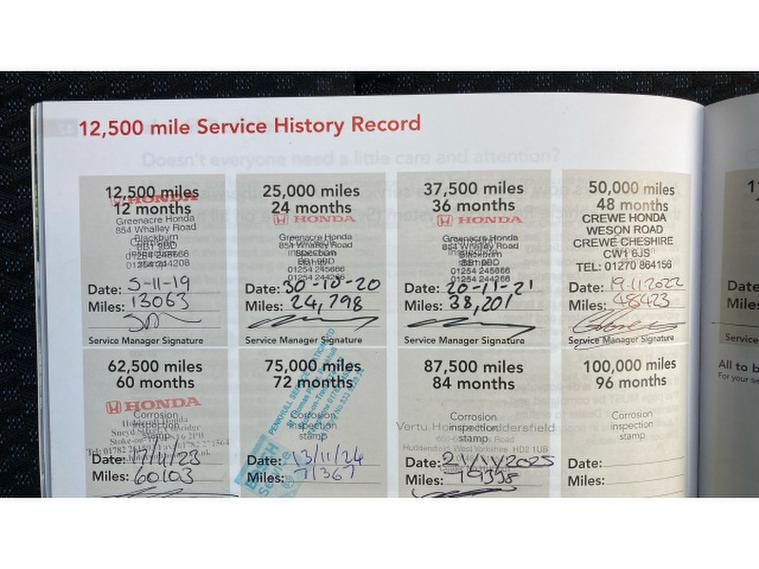 12,500 mile Service History Record
Doesn't everyone need a little care and attention?
12,500 miles
12 months
HONDA
Greenacre Honda
854 Whalley Road
Blackburn
Date: 5-11-19
Miles: 13063
Service Manager Signature
25,000 miles
24 months
HONDA
Greenacre Honda
854 Whalley Road
01254 245666
01254 244208
Date: 30-10-20
Miles: 24,798
Service Manager Signature
37,500 miles
36 months
HONDA
Greenacre Honda
854 Whalley Road
Blackburn
01254 245666
01254 244208
Date: 20-11-21
Miles: 38,201
Service Manager Signature
50,000 miles
48 months
CREWE HONDA
WESON ROAD
CREWE CHESHIRE
CW1 6JS
TEL: 01270 864156
Date: 19.11.2022
Miles: 48423
Service Manager Signature
62,500 miles
60 months
HONDA
Corrosion
inspection
stamp
Date: 17/11/23
Miles: 60103
75,000 miles
72 months
Corrosion
inspection
stamp
Date: 13/11/24
Miles: 71367
87,500 miles
84 months
Corrosion
inspection
stamp
Vertu Honda Huddersfield
Huddersfield West Yorkshire HD2 1UB
Date: 21/11/2025
Miles: 79398
100,000 miles
96 months
Corrosion
inspection
stamp
Date:
Miles:
Date
Miles
Service
All to b
For your se